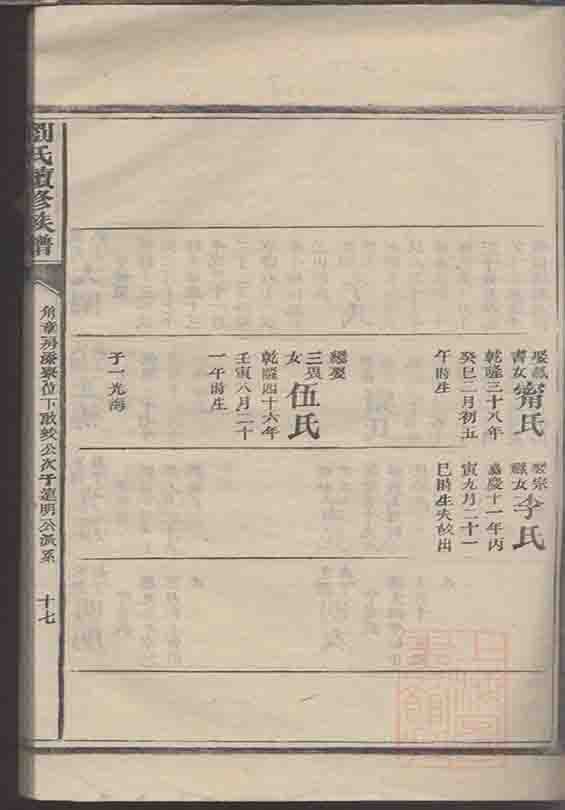 劉氏續修族譜
角章房添寮位下啟 公次子 明公派系
十七
娶
書女
甯氏
乾隆三十八年
癸巳二月初五
午時生
繼娶
三
女
伍氏
乾隆四十六年
壬寅八月二十
一午時生
子一光海
娶宗
女
李氏
嘉慶十一年丙
寅九月二十一
巳時生失 出